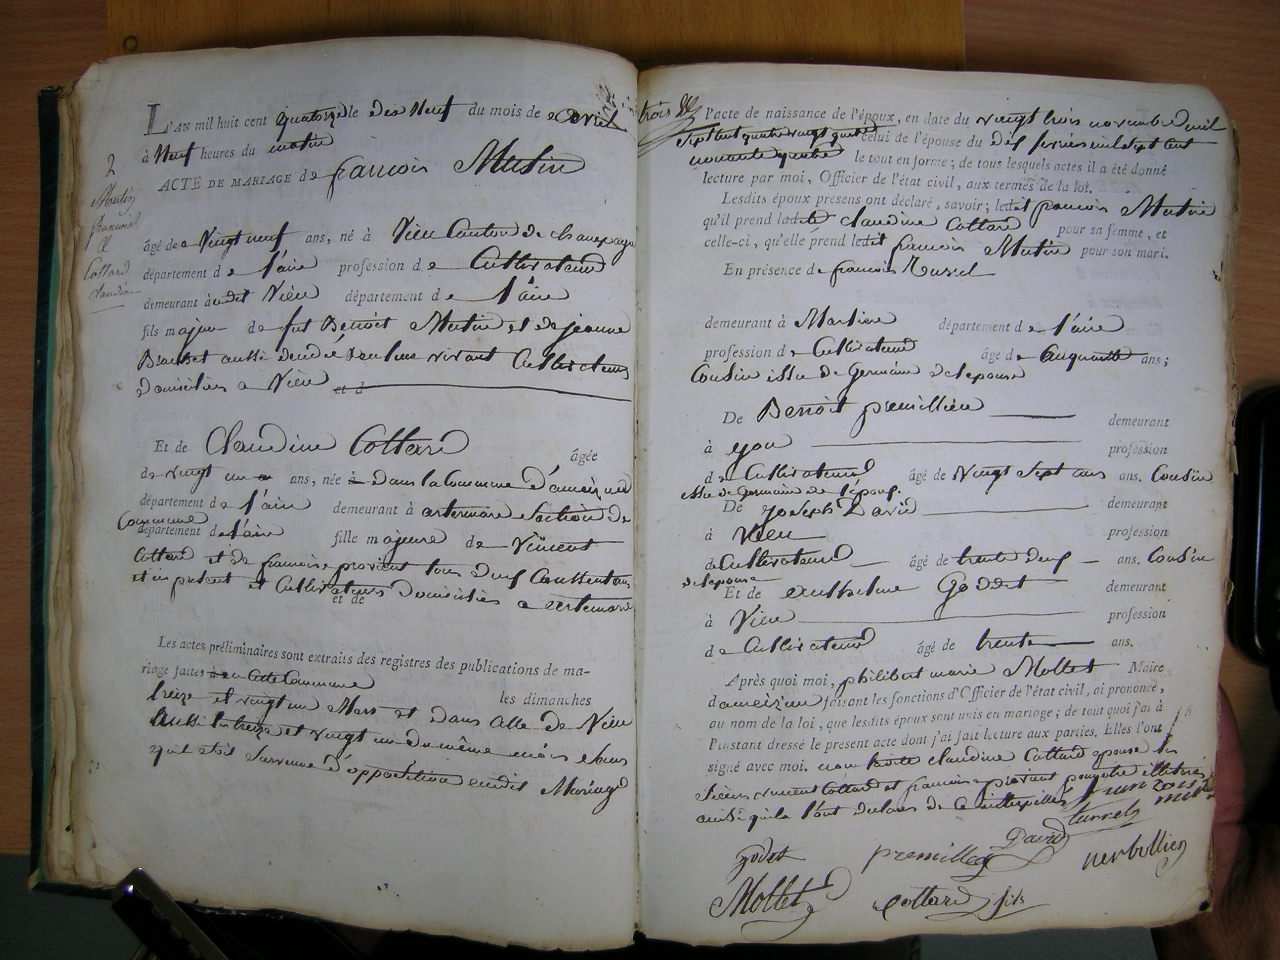 L'AN mil huit cent quatorze le dix Neuf du mois de avril
à Neuf heures du matin
2
ACTE DE MARIAGE de francois Mutin
Mutin
francois
&
Cottard
claudine
âgé de Vingt neuf ans, né à Vieu Canton de champagne
département de l'ain profession de Cultivateur
demeurant à udit Vieu département de l'ain
fils majeur de fut Benoit Mutin et de jeanne
aussi decedé vivant Cultivateurs
domiciliés a Vieu et d
Et de Claudine Cottard âgée
de vingt un ans, née à dans la Commune d'ameizieu
département de l'ain demeurant à artemare Section de
Commune
département de l'ain fille majeure de Vincent
Cottard et de francoise provient tous deux Consentans
et ici present et Cultivateurs domiciliés a artemare
et de
Les actes préliminaires sont extraits des registres des publications de ma-
riage faites à en Cette Commune
les dimanches
treize et vingt un Mars et dans Celle de Vieu
aussi le treize et vingt un du même mois sans
qu'il etoit Survenue d'opposition audit Mariage
trois
l'acte de naissance de l'époux, en date du vingt trois novembre mil
Sept cent quatre vingt quatre celui de l'épouse du dix fevrier mil sept cent
nonante quatre le tout en forme; de tous lesquels actes il a été donné
lecture par moi, Officier de l'état civil, aux termes de la loi.
Lesdits époux présens ont déclaré, savoir; ledit francois Mutin
qu'il prend ladite claudine Cottard pour sa femme, et
celle-ci, qu'elle prend ledit francois Mutin pour son mari.
En présence de francois
demeurant à département de l'ain
profession de Cultivateur âgé de Cinquante ans;
Cousin issu de Germain de lepouse
De Benoit premillieu demeurant
à yon profession
de Cultivateur âgé de Vingt Sept ans ans. Cousin
issu de Germain de l'époux
De joseph David demeurant
à Vieu profession
de Cultivateur âgé de trente deux ans. Cousin
de lepouse
Et de anthelme Goddet demeurant
à Vieu profession
de Cultivateur âgé de trente ans.
Après quoi moi, philibert marie Mollet Maire
dameizieu faisant les fonctions d'Officier de l'état civil, ai prononcé,
au nom de la loi, que lesdits époux sont unis en mariage; de tout quoi j'ai à
l'instant dressé le présent acte dont j'ai fait lecture aux parties. Elles l'ont
signé avec moi. non ladite claudine Cottard epouse les
Sieurs vincent Cottard et francoise provient pour être illitérés
ainsi qu'ils l'ont declaré de ce interpellés
francois
turrel
godet premillieu David
Mollet cottard fils